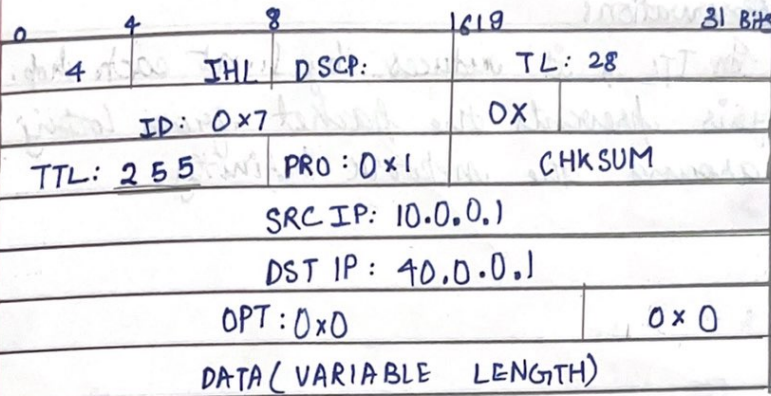 0 4 8 16 19 31 Bits
4 IHL DSCP: TL: 28
ID: 0x7 0x
TTL: 255 PRO: 0x1 CHKSUM
SRC IP: 10.0.0.1
DST IP: 40.0.0.1
OPT: 0x0 0x0
DATA (VARIABLE LENGTH)